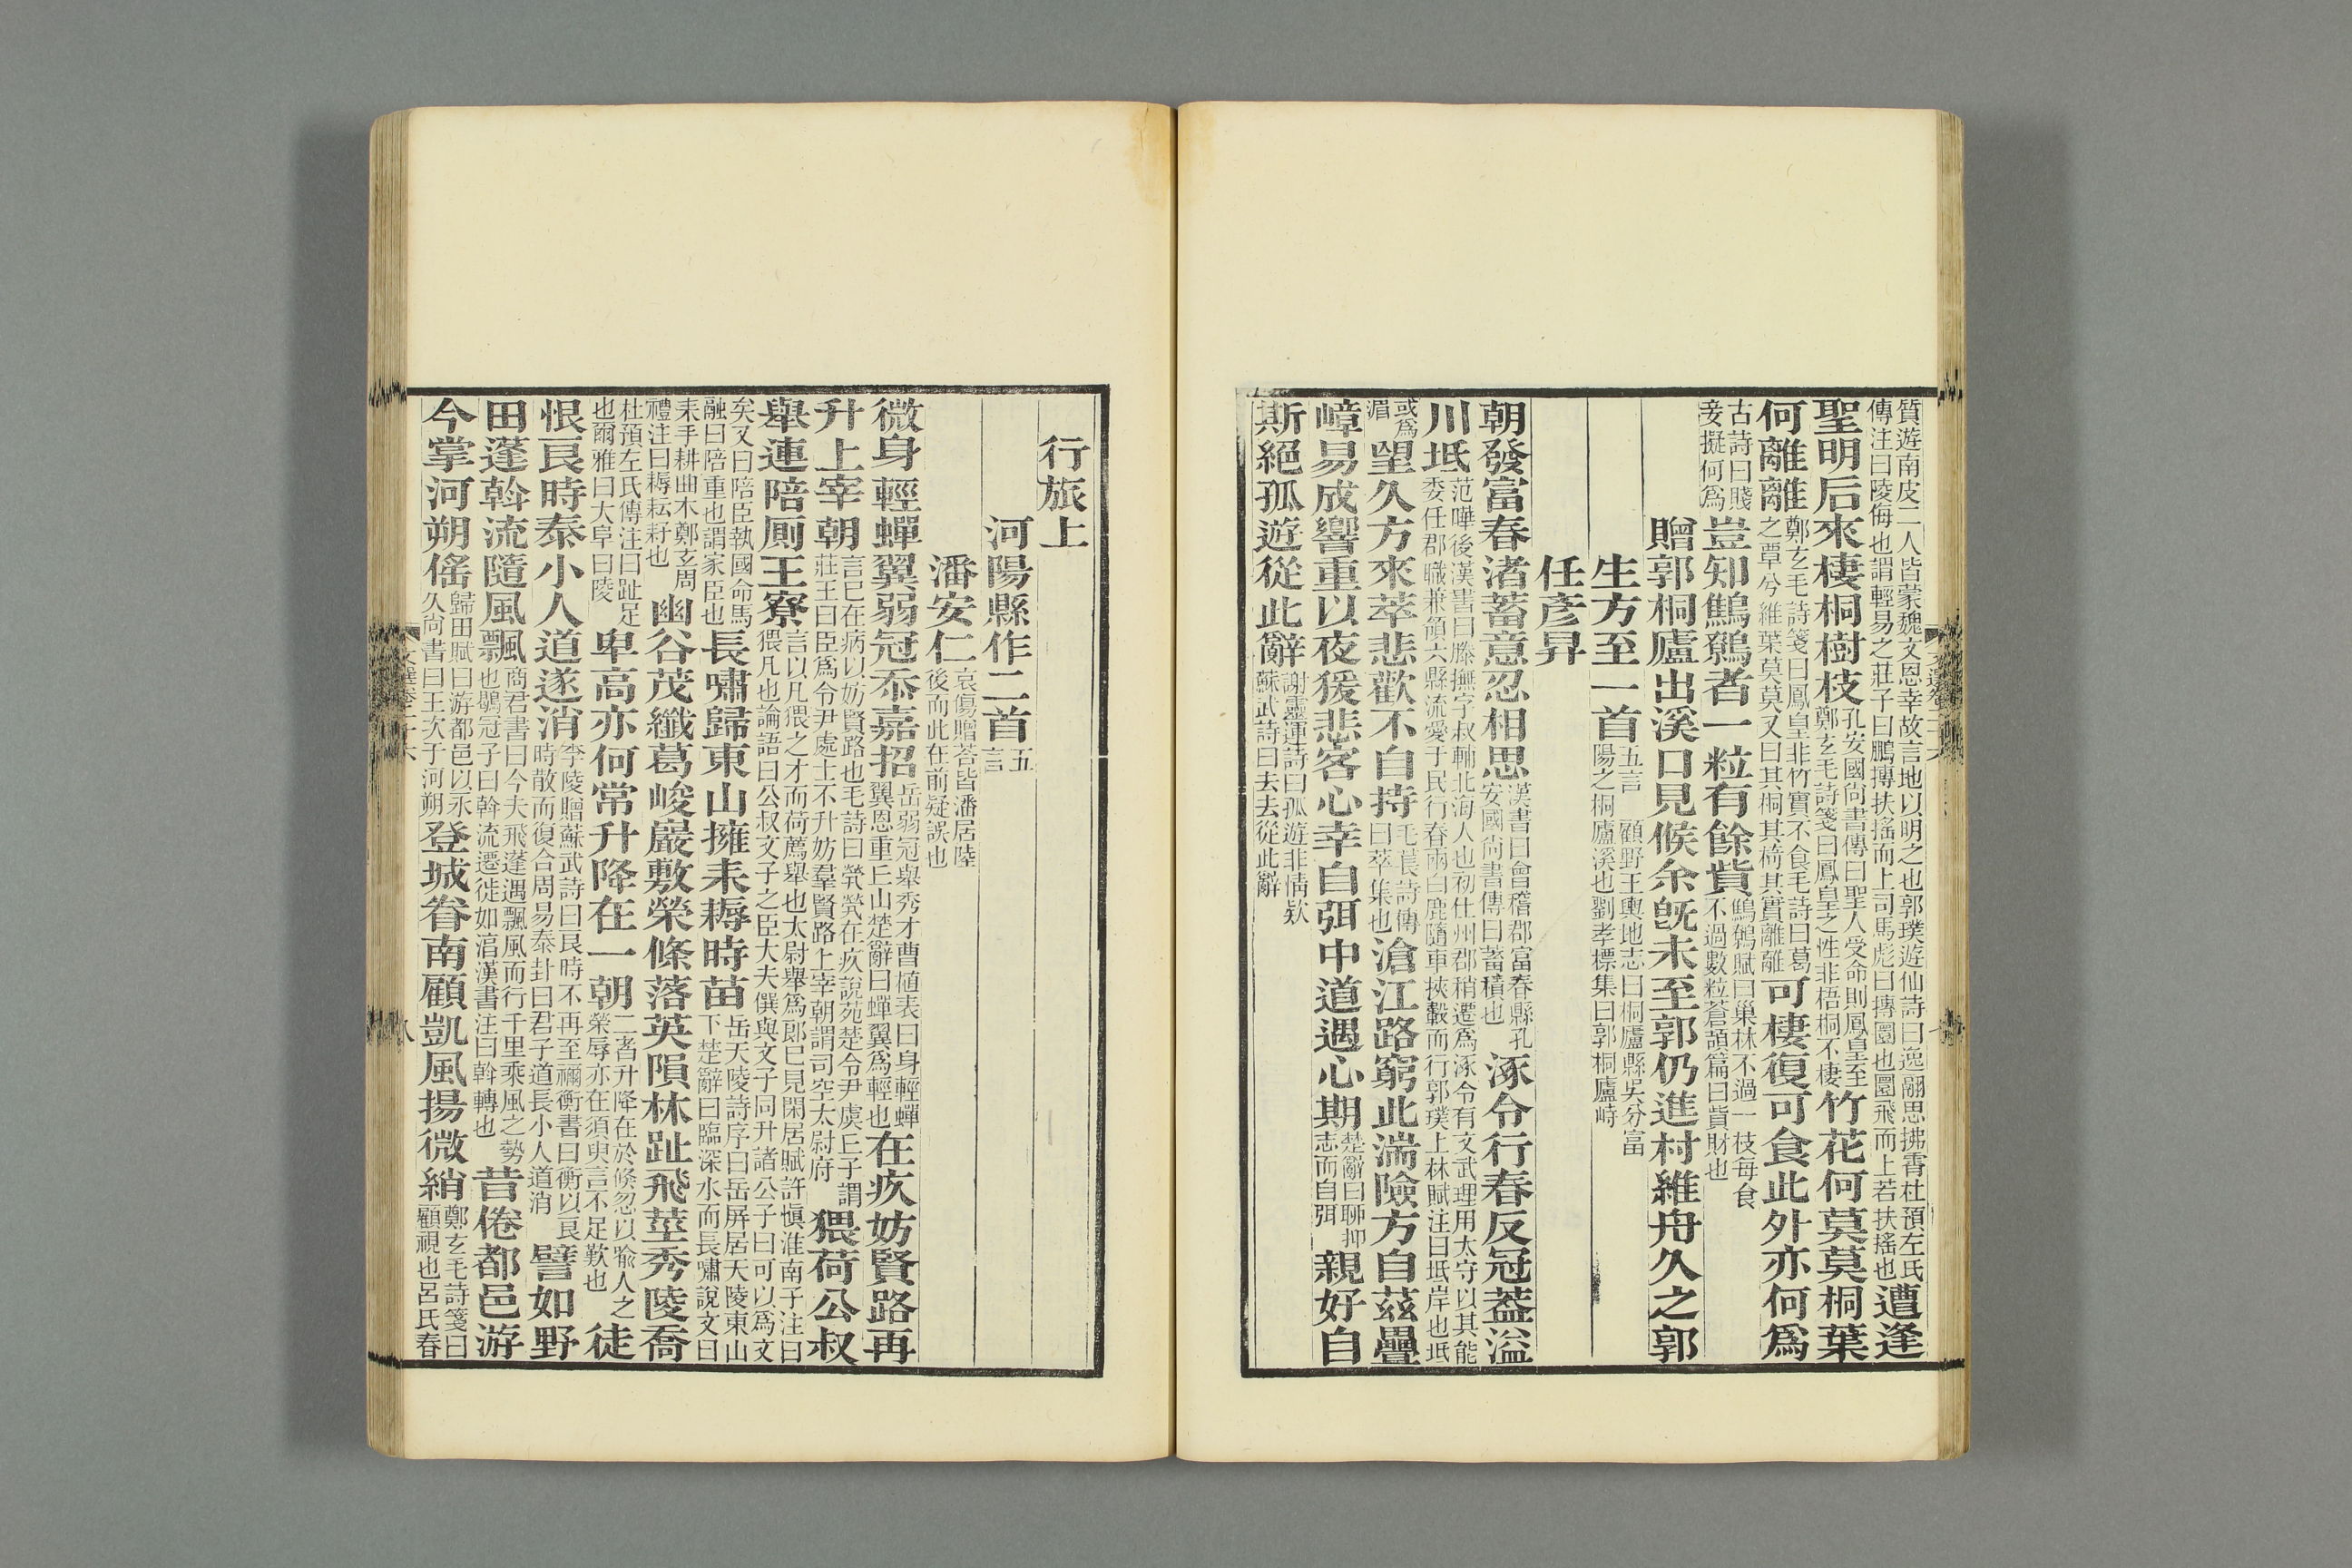 質遊南皮二人皆蒙魏文恩幸故言地以明之也郭璞遊仙詩曰逸翮思拂霄杜預左氏
傳注曰陵侮也謂輕易之莊子曰鵬摶扶搖而上司馬彪曰摶圜也圜飛而上若扶搖也遭逢
聖明后來棲桐樹枝孔安國尚書傳曰聖人受命則鳳皇至鄭玄毛詩箋曰鳳皇之性非梧桐不棲竹花何莫莫桐葉
何離離鄭玄毛詩箋曰鳳皇非竹實不食毛詩曰葛之覃兮維葉莫莫又曰其桐其椅其實離離可棲復可食此外亦何爲
古詩曰賤妾擬何爲豈知鷦鷯者一粒有餘貲鷦鷯賦曰巢林不過一枝每食不過數粒蒼頡篇曰貲財也
贈郭桐廬出溪口見候余旣未至郭仍進村維舟久之郭
生方至一首五言 顧野王輿地志曰桐廬縣吳分富陽之桐廬溪也劉孝標集曰郭桐廬峙
任彥昇
朝發富春渚蓄意忍相思漢書曰會稽郡富春縣孔安國尚書傳曰蓄積也涿令行春反冠葢溢
川坻范曄後漢書曰滕撫字叔輔北海人也初仕州郡稍遷爲涿令有文武理用太守以其能委任郡職兼領六縣流愛于民行春兩白鹿隨車挾轂而行郭璞上林賦注曰坻岸也坻
或爲湄望久方來萃悲歡不自持毛萇詩傳曰萃集也滄江路窮此湍險方自茲疊
嶂易成響重以夜猨悲客心幸自弭中道遇心期楚辭曰聊抑志而自弭親好自
斯絕孤遊從此辭謝靈運詩曰孤遊非情歎蘇武詩曰去去從此辭
行旅上
河陽縣作二首五言
潘安仁哀傷贈荅皆潘居陸後而此在前疑誤也
微身輕蟬翼弱冠忝嘉招岳弱冠舉秀才曹植表曰身輕蟬翼恩重丘山楚辭曰蟬翼爲輕也在疚妨賢路再
升上宰朝言已在病以妨賢路也毛詩曰煢煢在疚說苑楚令尹虞丘子謂莊王曰臣爲令尹處士不升妨羣賢路上宰朝謂司空太尉府猥荷公叔
舉連陪厠王寮言以凡猥之才而荷薦舉也太尉舉爲郎已見閑居賦許愼淮南子注曰猥凡也論語曰公叔文子之臣大夫僎與文子同升諸公子曰可以爲文
矣又曰陪臣執國命馬融曰陪重也謂家臣也長嘯歸東山擁耒耨時苗岳天陵詩序曰岳屏居天陵東山下楚辭曰臨深水而長嘯說文曰
耒手耕曲木鄭玄周禮注曰耨耘耔也幽谷茂纖葛峻巖敷榮條落英隕林趾飛莖秀陵喬
杜預左氏傳注曰趾足也爾雅曰大阜曰陵卑高亦何常升降在一朝二者升降在於倏忽以喻人之榮辱亦在須臾言不足歎也徒
恨良時泰小人道遂消李陵贈蘇武詩曰良時不再至禰衡書曰衡以良時散而復合周易泰卦曰君子道長小人道消譬如野
田蓬斡流隨風飄商君書曰今夫飛蓬遇飄風而行千里乘風之勢也鶡冠子曰斡流遷徙如淳漢書注曰斡轉也昔倦都邑游
今掌河朔傜歸田賦曰游都邑以永久尙書曰王次于河朔登城眷南顧凱風揚微綃鄭玄毛詩箋曰顧視也呂氏春
文選卷二十六
八